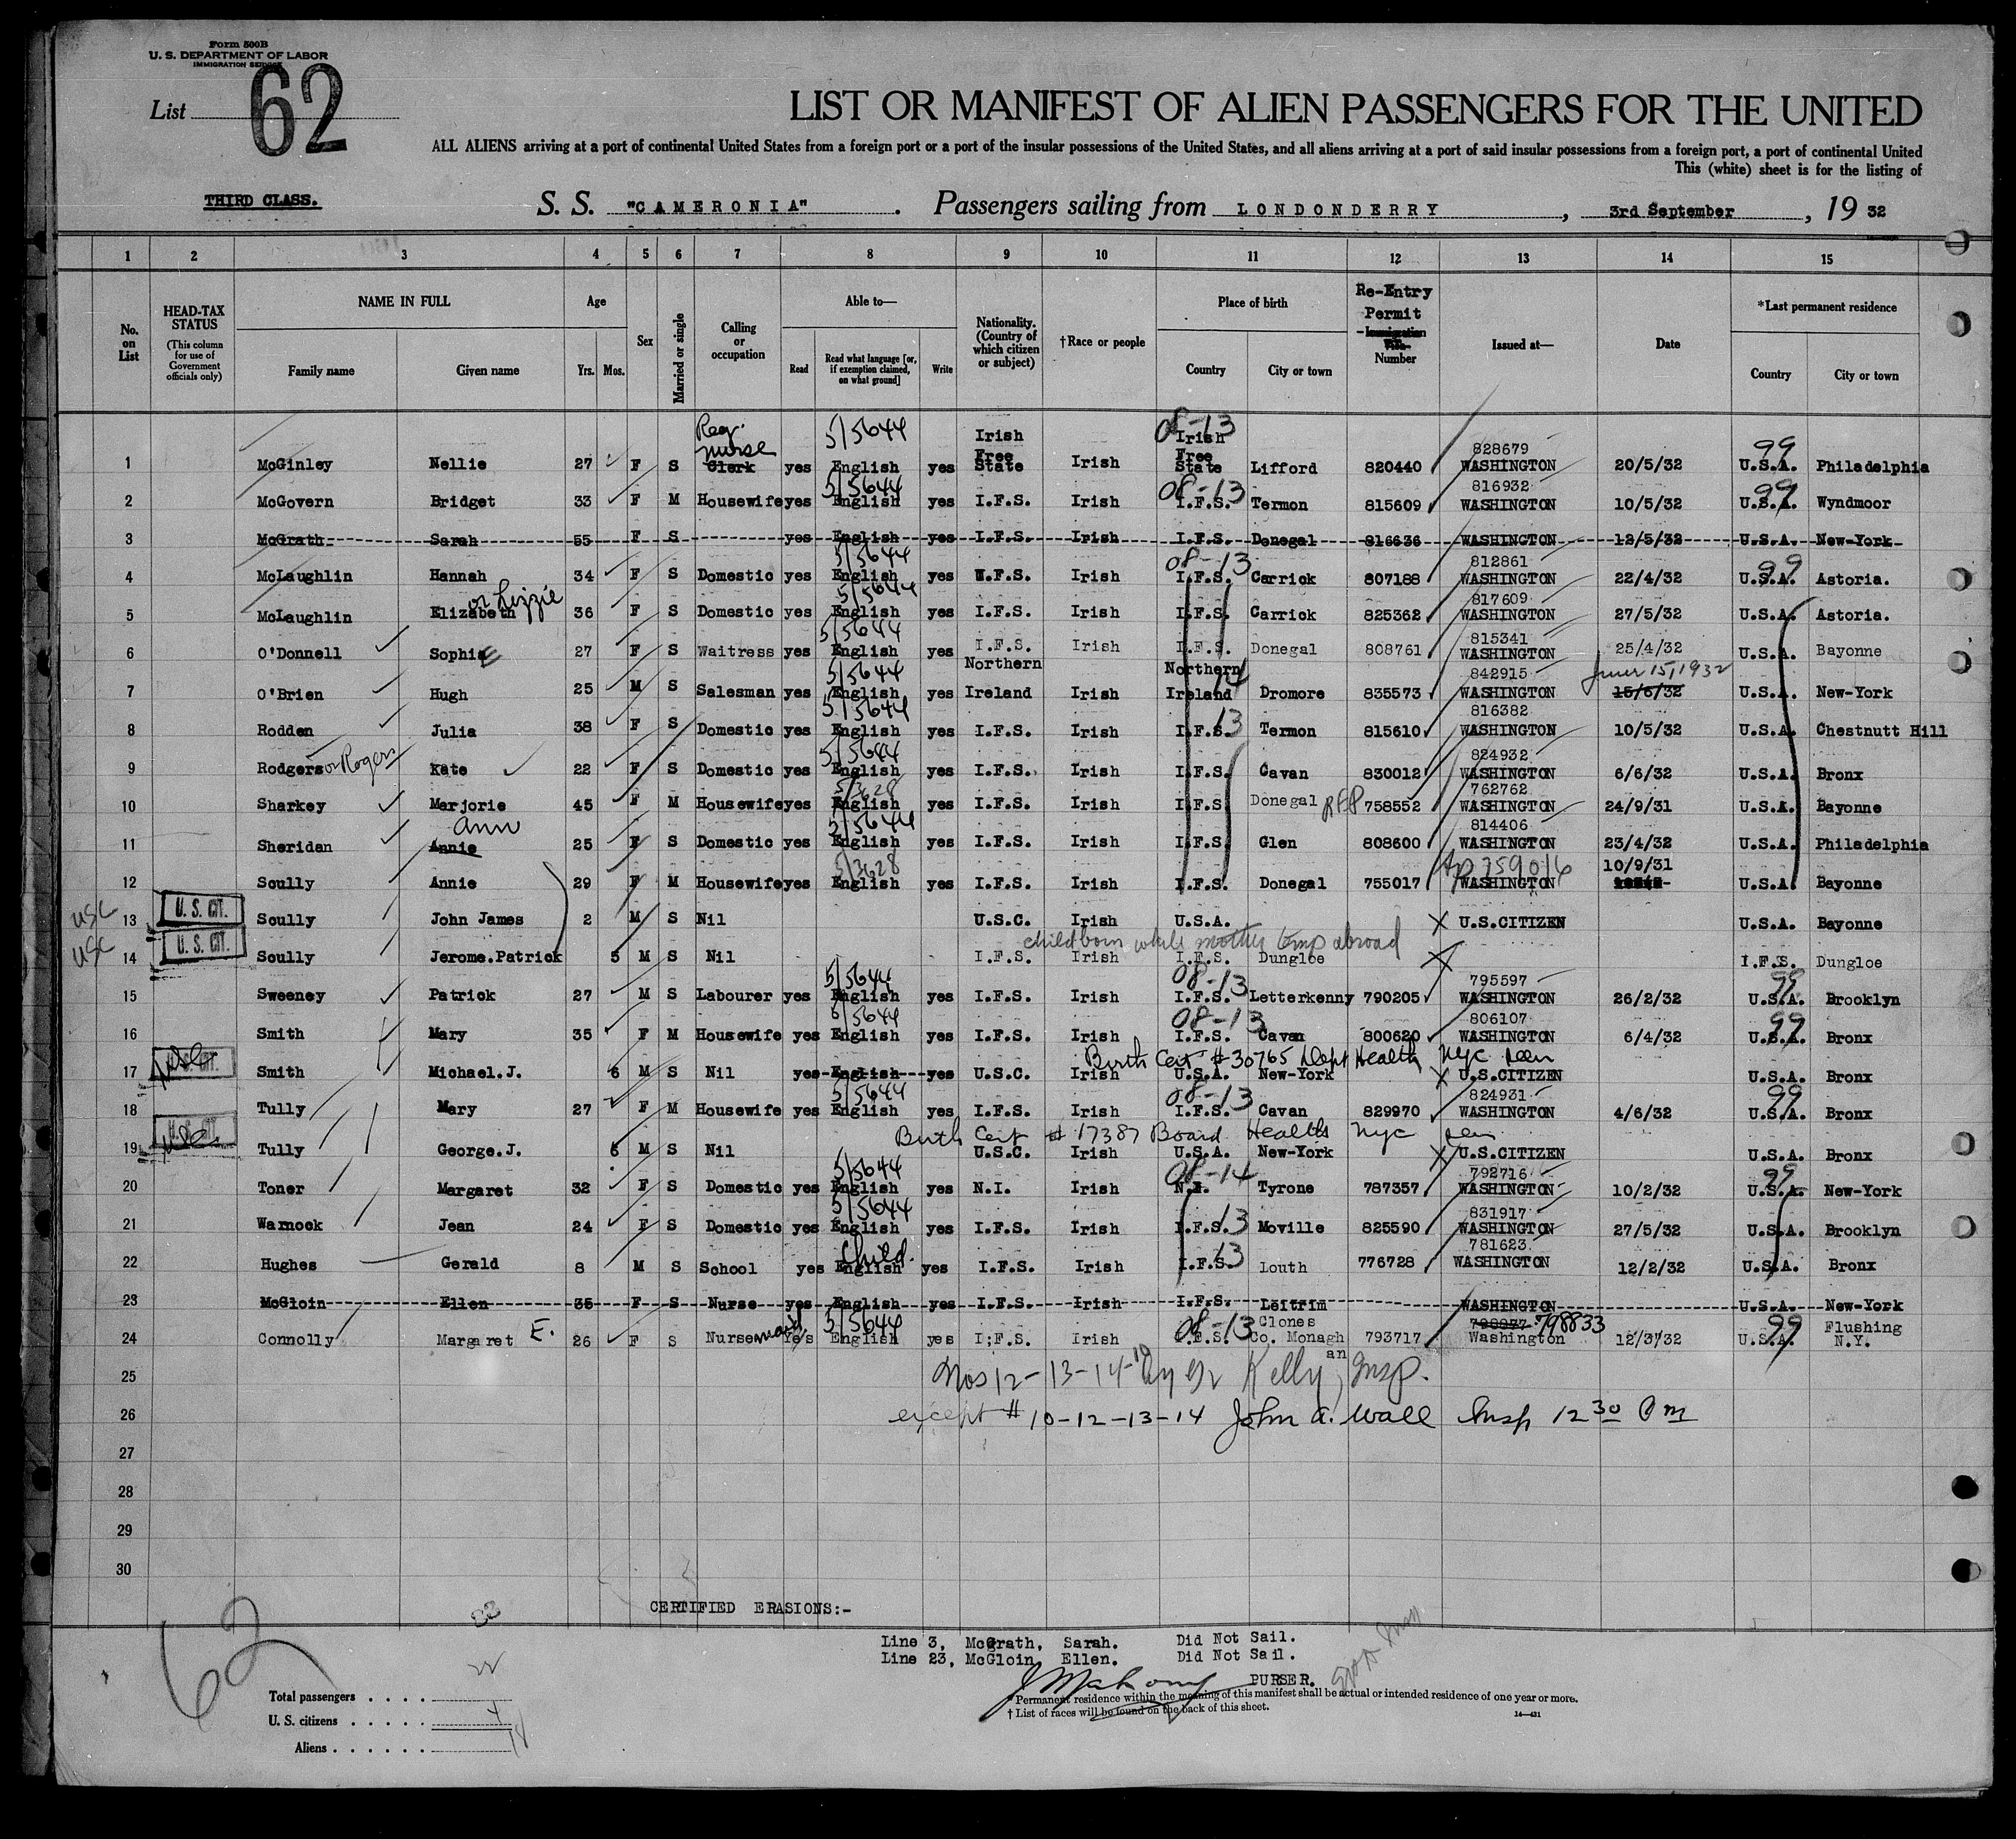 Form 500B
U. S. DEPARTMENT OF LABOR
IMMIGRATION SERVICE
List 62
LIST OR MANIFEST OF ALIEN PASSENGERS FOR THE UNITED
ALL ALIENS arriving at a port of continental United States from a foreign port or a port of the insular possessions of the United States, and all aliens arriving at a port of said insular possessions from a foreign port, a port of continental United
This (white) sheet is for the listing of
THIRD CLASS.
S. S. "CAMERONIA" . Passengers sailing from LONDONDERRY , 3rd September , 19 32
1 2 3 4 5 6 7 8 9 10 11 12 13 14 15
No. on List
HEAD-TAX STATUS (This column for use of Government officials only)
NAME IN FULL Family name Given name
Age Yrs. Mos.
Sex
Married or single
Calling or occupation
Able to— Read Read what language [or, if exemption claimed, on what ground] Write
Nationality. (Country of which citizen or subject)
†Race or people
Place of birth Country City or town
Re-Entry Permit Number
Issued at—
Date
*Last permanent residence Country City or town
1 McGinley Nellie 27 F S Clerk Reg. nurse yes English 5/5644 yes Irish Free State Irish Irish Free State 08-13 Lifford 820440 828679 WASHINGTON 20/5/32 U.S.A. 99 Philadelphia
2 McGovern Bridget 33 F M Housewife yes English 5/5644 yes I.F.S. Irish I.F.S. 08-13 Termon 815609 816932 WASHINGTON 10/5/32 U.S.A. 99 Wyndmoor
3 McGrath Sarah 55 F S yes English yes I.F.S. Irish I.F.S. Donegal 816636 WASHINGTON 12/5/32 U.S.A. New-York
4 McLaughlin Hannah 34 F S Domestic yes English 5/5644 yes I.F.S. Irish I.F.S. 08-13 Carrick 807188 812861 WASHINGTON 22/4/32 U.S.A. 99 Astoria.
5 McLaughlin Elizabeth or Lizzie 36 F S Domestic yes English 5/5644 yes I.F.S. Irish I.F.S. Carrick 825362 817609 WASHINGTON 27/5/32 U.S.A. Astoria.
6 O'Donnell Sophie 27 F S Waitress yes English 5/5644 yes I.F.S. Irish I.F.S. Donegal 808761 815341 WASHINGTON 25/4/32 U.S.A. Bayonne
7 O'Brien Hugh 25 M S Salesman yes English 5/5644 yes Northern Ireland Irish Northern Ireland 14 Dromore 835573 842915 WASHINGTON 15/6/32 June 15, 1932 U.S.A. New-York
8 Rodden Julia 38 F S Domestic yes English 5/5644 yes I.F.S. Irish I.F.S. 13 Termon 815610 816382 WASHINGTON 10/5/32 U.S.A. Chestnutt Hill
9 Rodgers or Rogers Kate 22 F S Domestic yes English 5/5644 yes I.F.S. Irish I.F.S. Cavan 830012 824932 WASHINGTON 6/6/32 U.S.A. Bronx
10 Sharkey Marjorie 45 F M Housewife yes English 5/3628 yes I.F.S. Irish I.F.S. Donegal 758552 762762 WASHINGTON 24/9/31 U.S.A. Bayonne
11 Sheridan Annie Ann 25 F S Domestic yes English 5/5644 yes I.F.S. Irish I.F.S. Glen 808600 814406 WASHINGTON 23/4/32 U.S.A. Philadelphia
12 Scully Annie 29 F M Housewife yes English 5/3628 yes I.F.S. Irish I.F.S. Donegal 755017 759016 WASHINGTON 10/9/31 U.S.A. Bayonne
USC 13 U. S. CIT. Scully John James 2 M S Nil U.S.C. Irish U.S.A. X U.S.CITIZEN U.S.A. Bayonne
child born while mother temp abroad
USC 14 U. S. CIT. Scully Jerome.Patrick 5 M S Nil I.F.S. Irish I.F.S. Dungloe X I.F.S. Dungloe
15 Sweeney Patrick 27 M S Labourer yes English 5/5644 yes I.F.S. Irish I.F.S. 08-13 Letterkenny 790205 795597 WASHINGTON 26/2/32 U.S.A. 99 Brooklyn
16 Smith Mary 35 F M Housewife yes English 5/5644 yes I.F.S. Irish I.F.S. 08-13 Cavan 800620 806107 WASHINGTON 6/4/32 U.S.A. 99 Bronx
Birth Cert #30765 Dept Health NYC seen
17 U. S. CIT. Smith Michael.J. 6 M S Nil yes English yes U.S.C. Irish U.S.A. New-York X U.S.CITIZEN U.S.A. Bronx
18 Tully Mary 27 F M Housewife yes English 5/5644 yes I.F.S. Irish I.F.S. 08-13 Cavan 829970 824931 WASHINGTON 4/6/32 U.S.A. 99 Bronx
Birth Cert # 17387 Board Health NYC seen
19 U. S. CIT. Tully George.J. 6 M S Nil U.S.C. Irish U.S.A. New-York X U.S.CITIZEN U.S.A. Bronx
20 Toner Margaret 32 F S Domestic yes English 5/5644 yes N.I. Irish N.I. 08-14 Tyrone 787357 792716 WASHINGTON 10/2/32 U.S.A. 99 New-York
21 Warnock Jean 24 F S Domestic yes English 5/5644 yes I.F.S. Irish I.F.S. 13 Moville 825590 831917 WASHINGTON 27/5/32 U.S.A. Brooklyn
22 Hughes Gerald 8 M S School yes English Child. yes I.F.S. Irish I.F.S. 13 Louth 776728 781623 WASHINGTON 12/2/32 U.S.A. Bronx
23 McGloin Ellen 35 F S Nurse yes English yes I.F.S. Irish I.F.S. Leitrim WASHINGTON U.S.A. New-York
24 Connolly Margaret E. 26 F S Nursemaid Yes English 5/5644 yes I;F.S. Irish I.F.S. 08-13 Clones Co. Monaghan 793717 798833 Washington 12/3/32 U.S.A. 99 Flushing N.Y.
25 Nos 12-13-14-10 Kelly, Insp.
26 except # 10-12-13-14 John A. Wall Insp 12 30 Pm
27
28
29
30
CERTIFIED ERASIONS:-
Line 3, McGrath, Sarah. Did Not Sail.
Line 23, McGloin, Ellen. Did Not Sail.
J Mahony PURSER.
62
Total passengers . . . . 22
U. S. citizens . . . . . 4
Aliens . . . . . . 18
* Permanent residence within the meaning of this manifest shall be actual or intended residence of one year or more.
† List of races will be found on the back of this sheet.
14—431